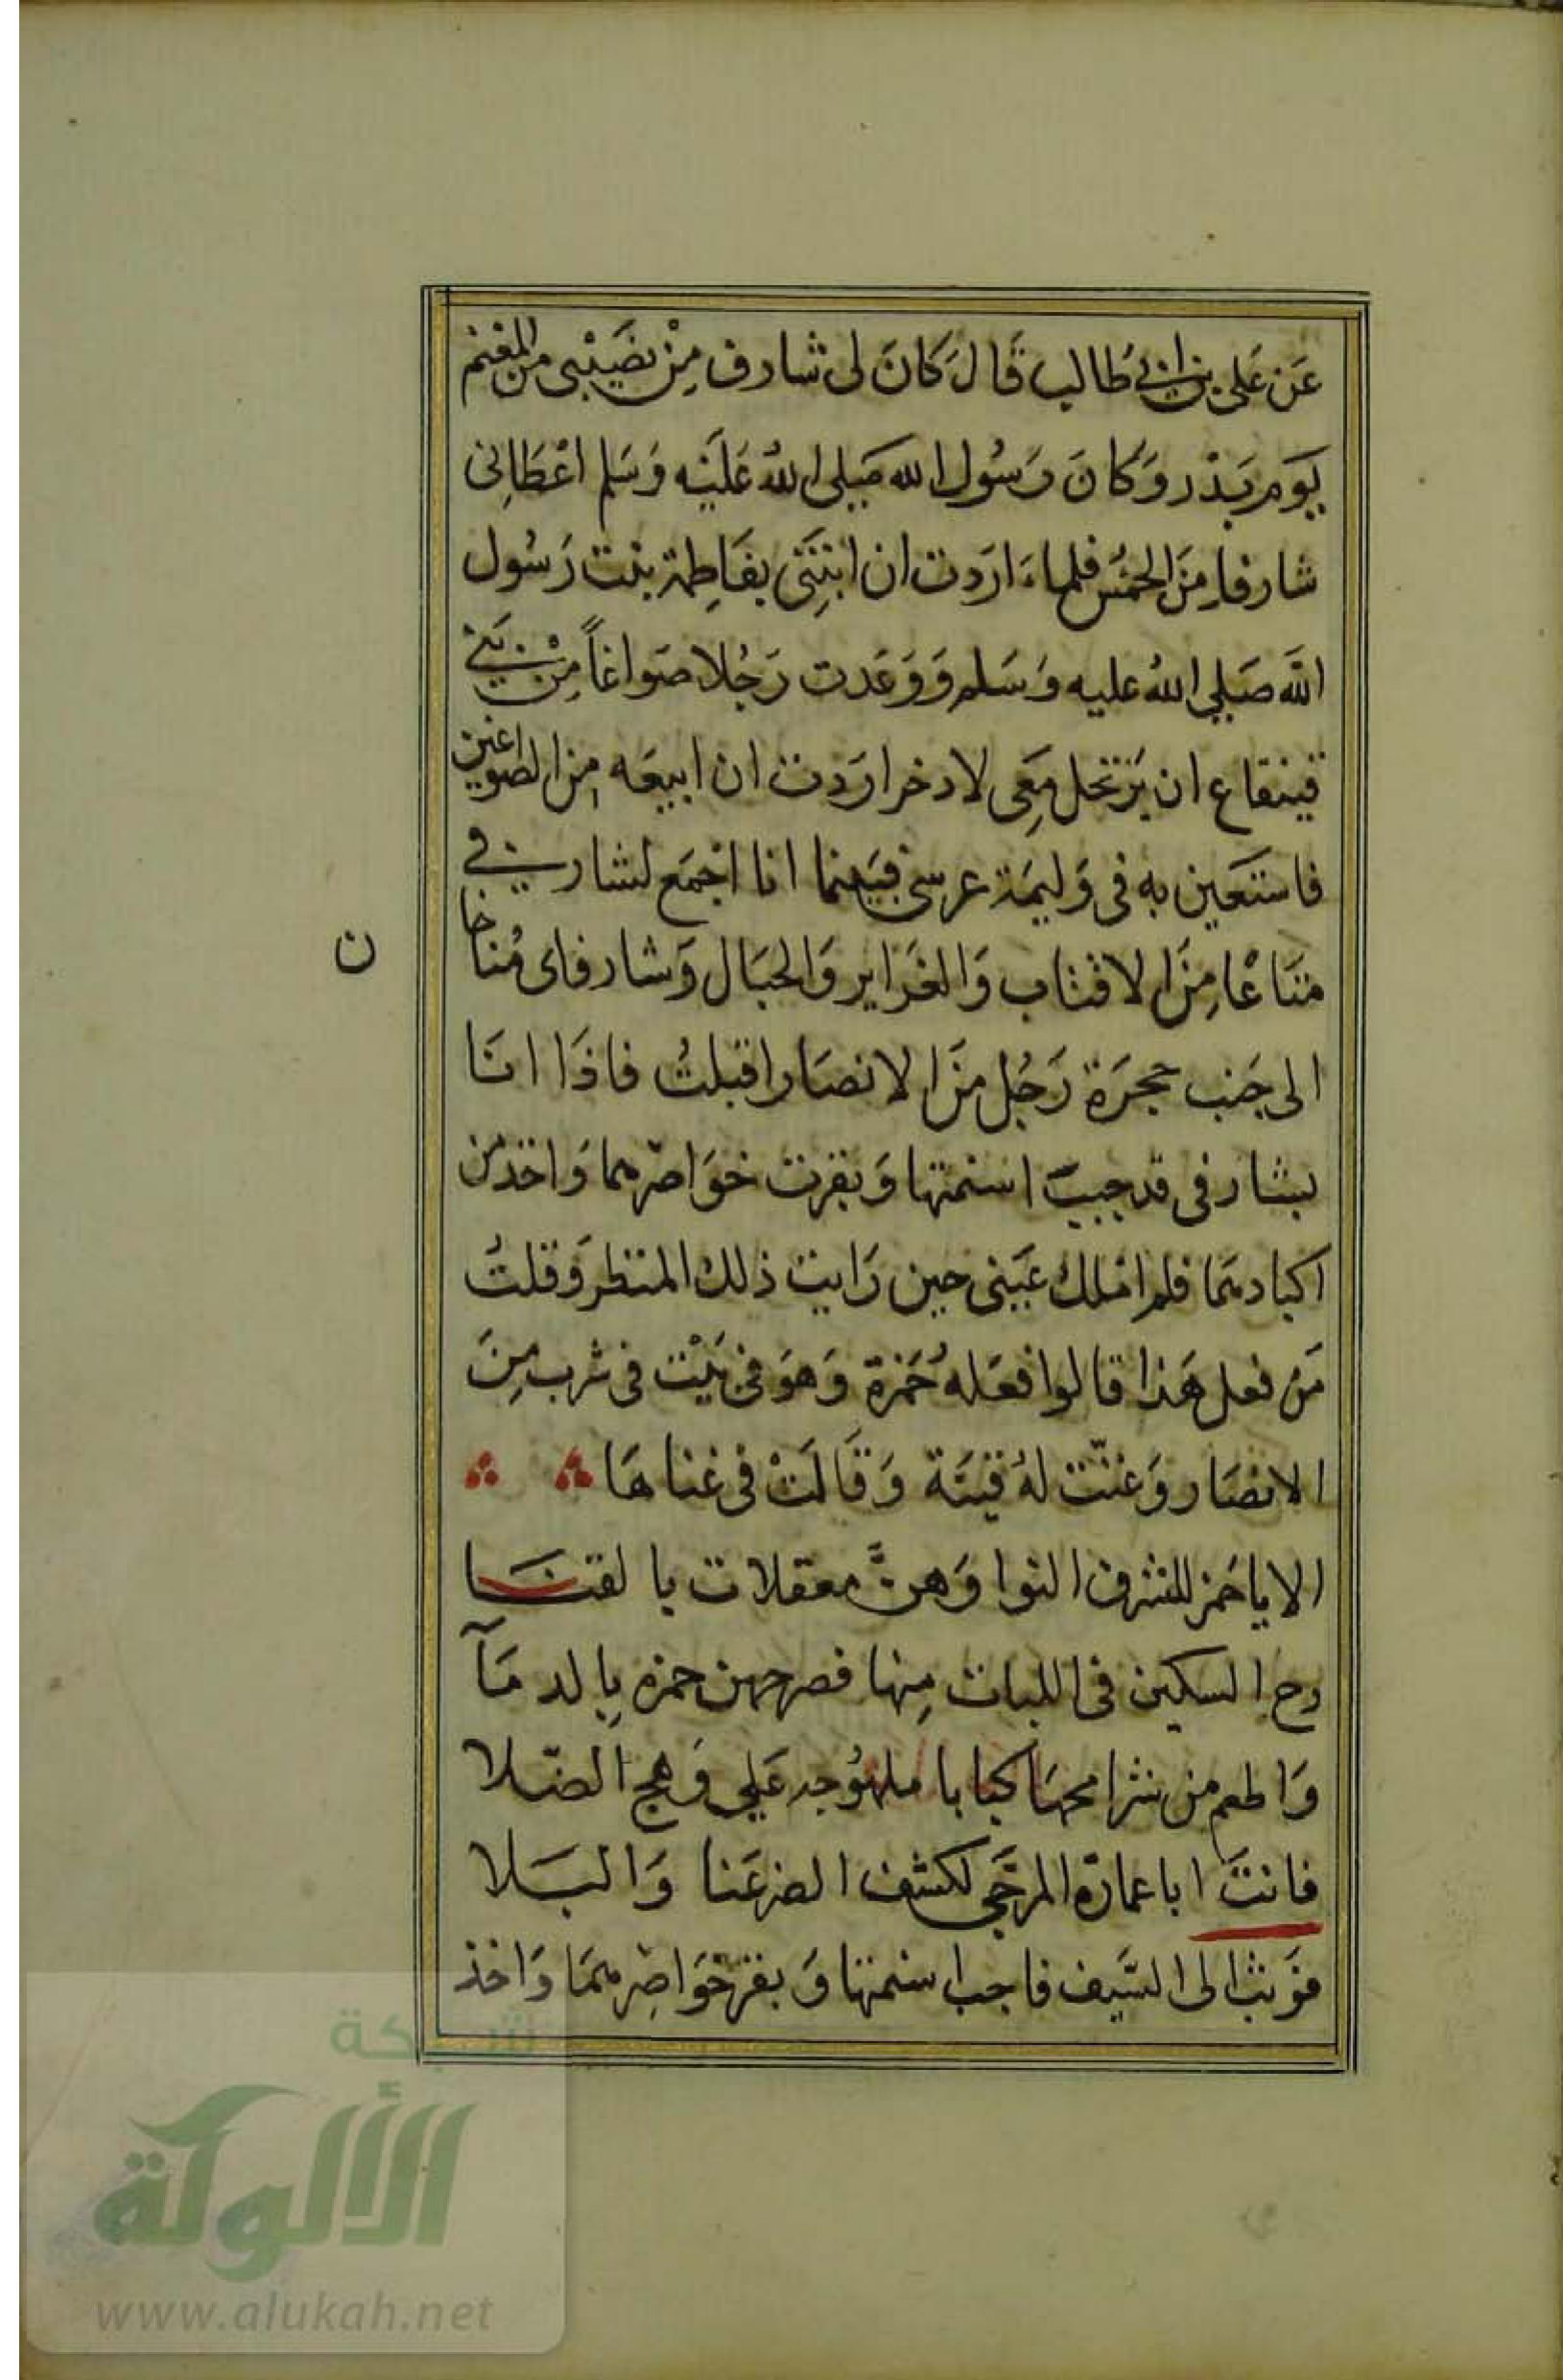 عَن عَلى بن ابى طَالب قَالَ كَانَ لى شارف مِنْ نصَيْبى من المغنم
يَوم بَدْر وَكَانَ رَسُول الله صَلى اللهُ عَلَيْه وَسَلم اعْطَانِى
شارفا مِنَ الخمُس فلما اَرَدت ان ابْتَنِى بفَاطِمة بنت رَسُول
اللَه صَلى اللهُ عليه وَسَلم وَوَعَدت رَجُلا صَواغاً مِنْ بَنى
قينقاع ان يَرتحل مَعِى لادخر ارَدت ان ابيعَه مِن الصواغين
فاستَعين به فى وَليمَة عرسى فبَينما انا اجْمَع لشارفى
مَتَاعًا مِنَ الاقتاب وَالغَراير وَالحبَال وَشارفاى مُناخا
ن
الى جَنب حجرَة رَجُل مِنَ الانصَار اقبلتُ فاذَا انَا
بشارفى قد جببت اسنمتها وَبقرت خوَاصرهما وَاخذ من
اكبادهمَا فلم املك عَينى حين رَايت ذلك المنظر وَقلتُ
مَن فعل هَذا قالوا فعَلهُ حَمزة وَهوَ فى بَيْت فى شرب مِنَ
الانصَار وَغنّت لهُ قينَة وَقَالَتْ فى غناهَا
الا يا حَمز للشرف النوا وَهنَّ معقلات بالفنَا
دع السكين فى اللبات مِنها فضرجهن حمزه بِالدمَآ
وَاطعم من شرامحهَا كبابا ملهُوجه عَلى وَهج الصَّلا
فانتَ ابا عمارَة المرجَّى لكشف الضر عَنا وَالبَلا
فوَثب الى السَّيف فاجب اسنمتها وَبقر خوَاصِرهمَا وَاخذ
شبكة
الألوكة
www.alukah.net